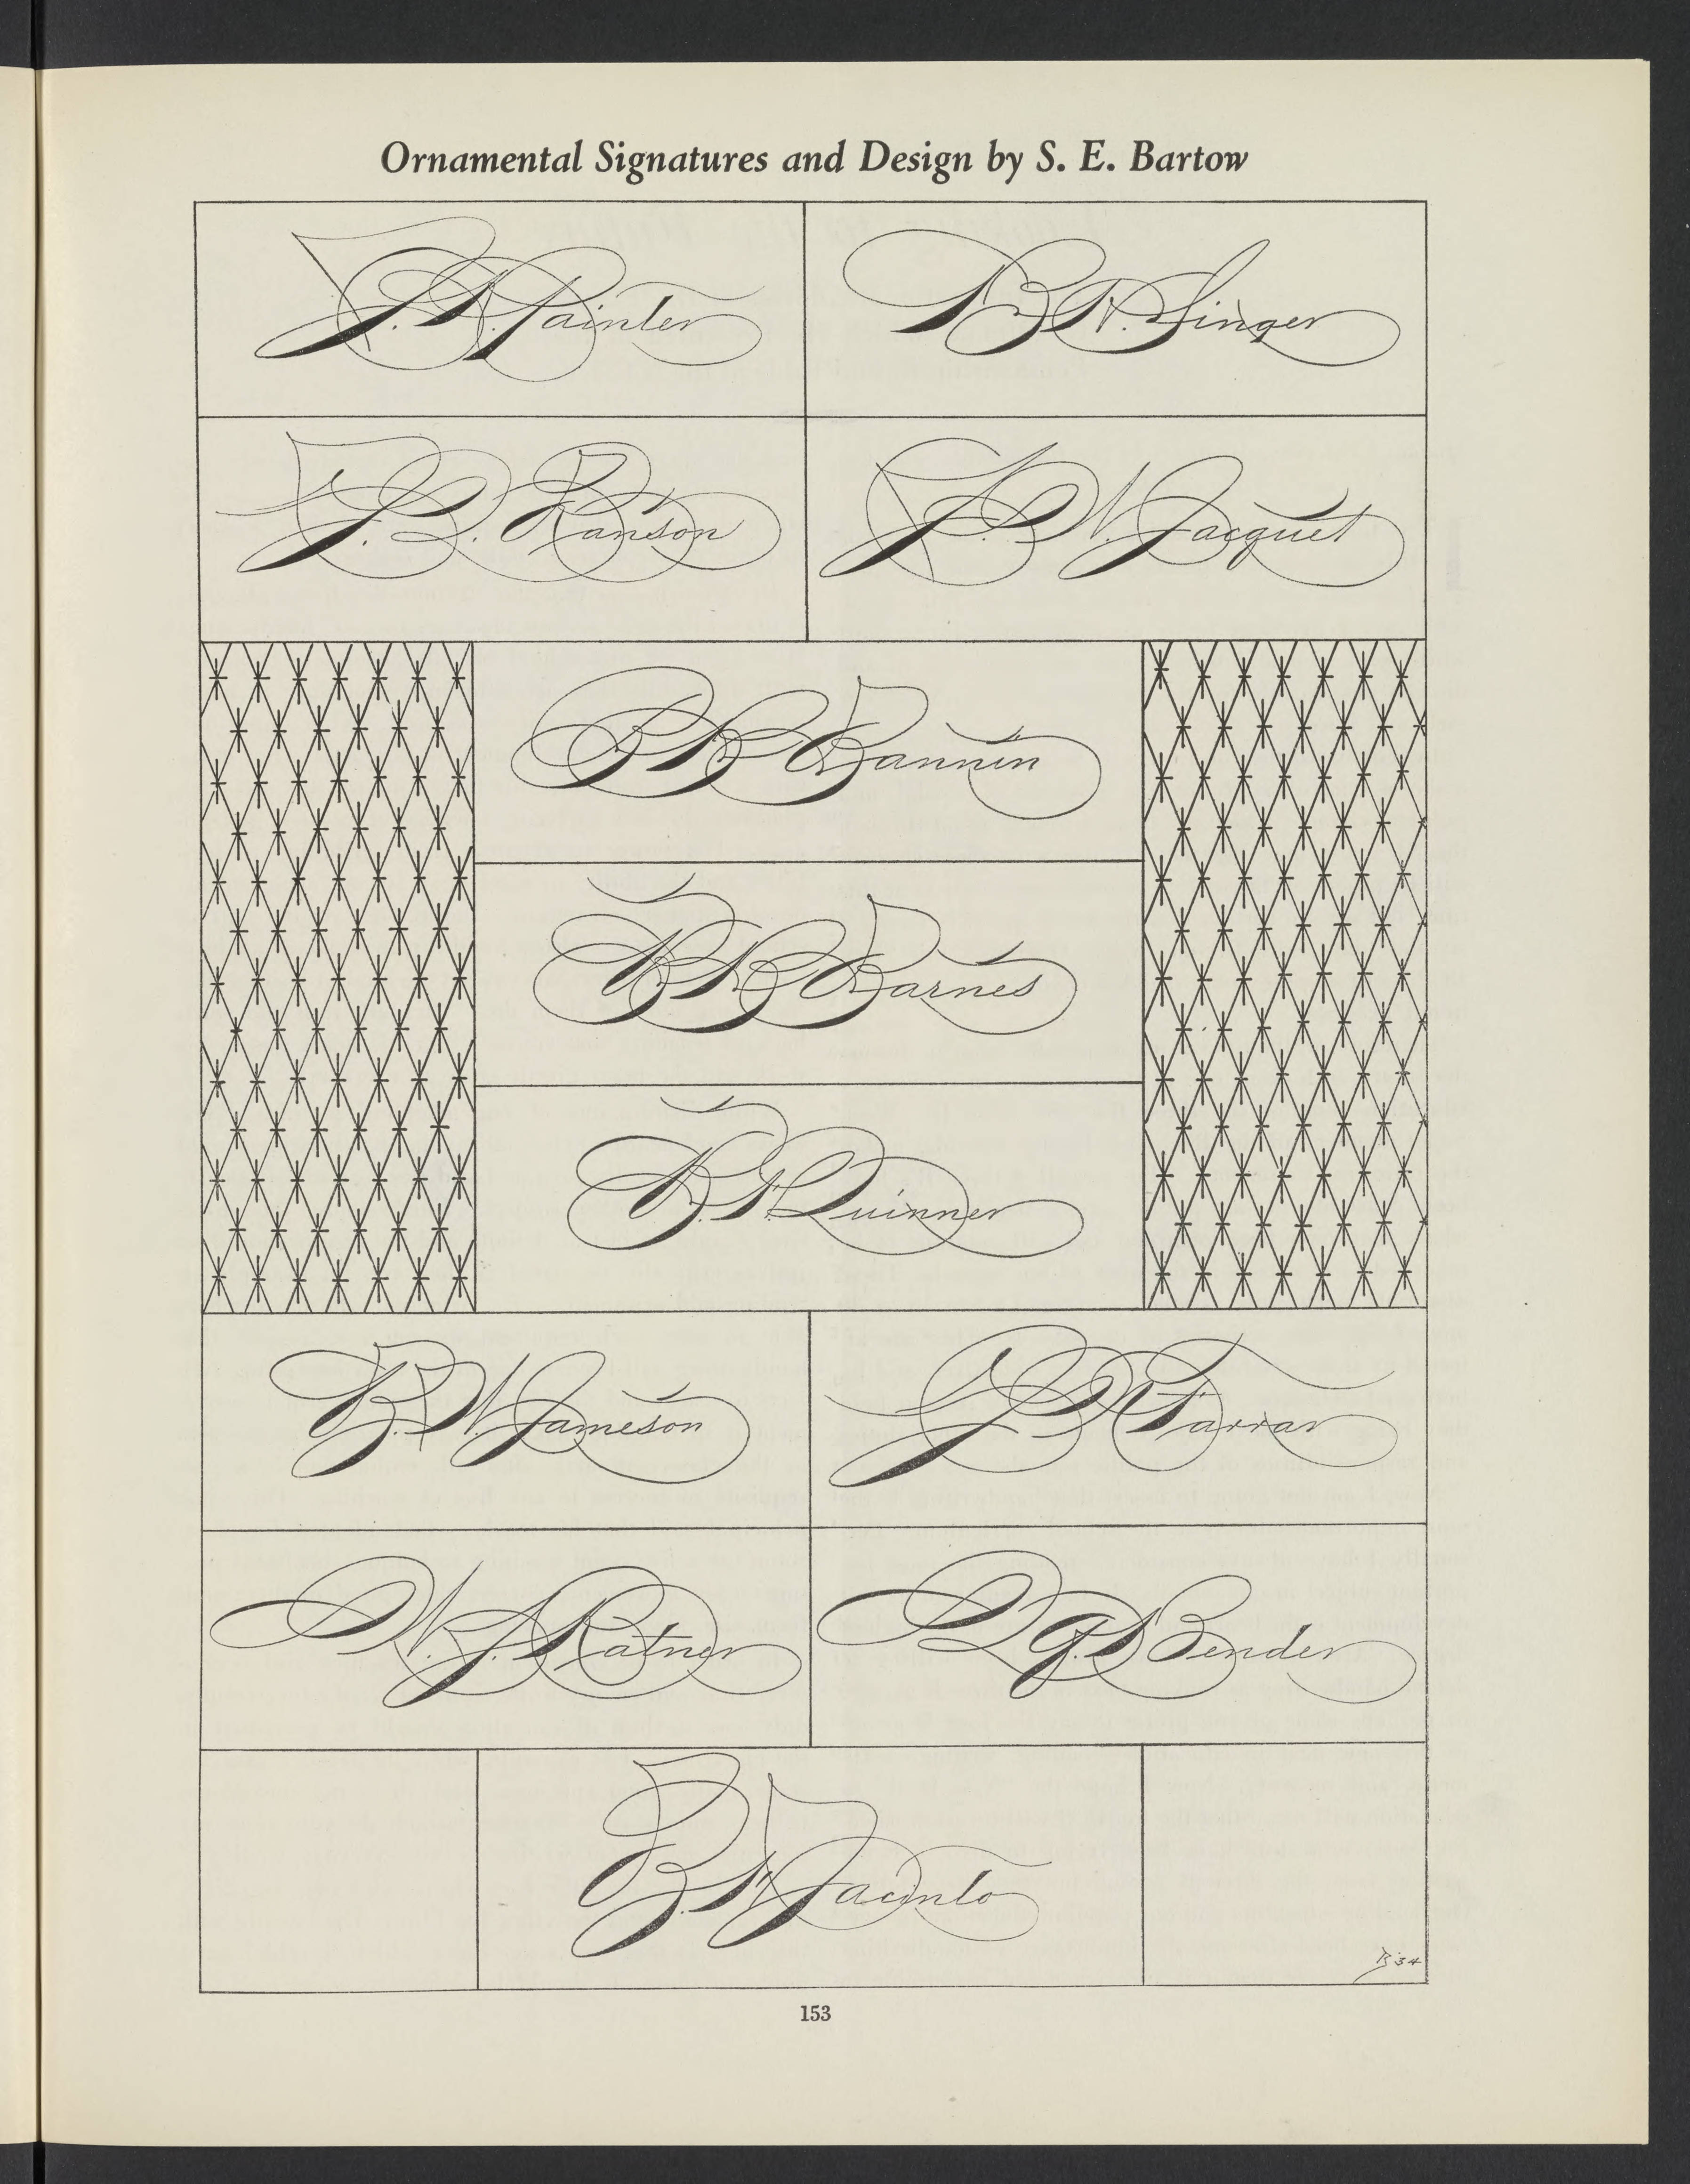 Ornamental Signatures and Design by S. E. Bartow
Painter
Singer
Ranson
Jacquet
Bannin
Barnes
Quinner
Jameson
Farrar
W. J. Ratner
Bender
Jacinto
B '34
153